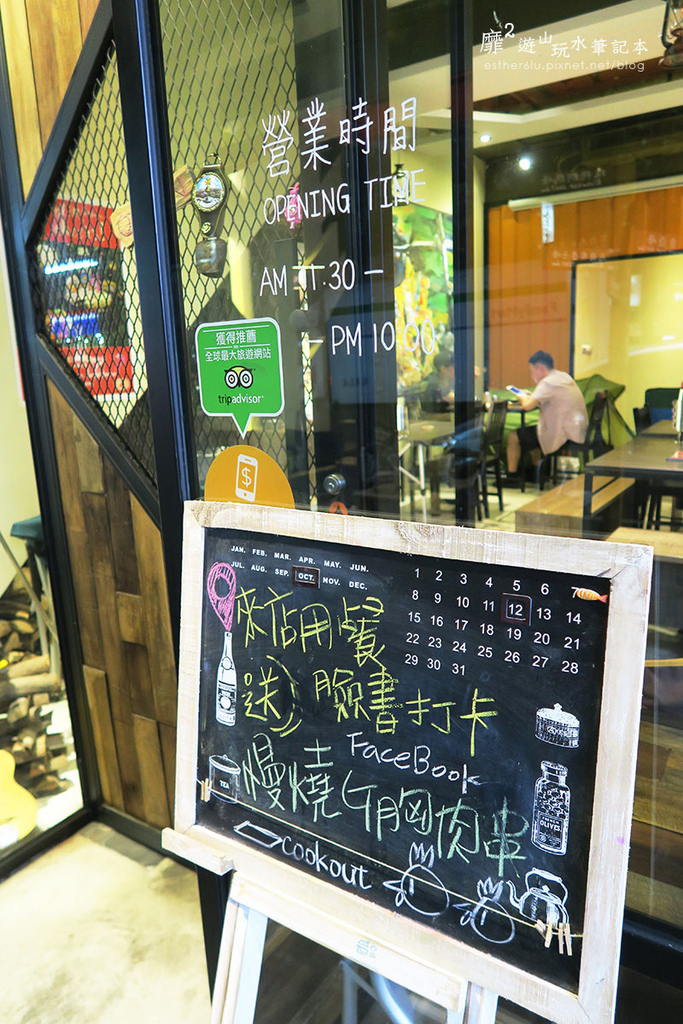 靡² 遊山玩水筆記本
esther6lu.pixnet.net/blog
營業時間
OPENING TIME
AM 11:30 —
— PM 10:00
獲得推薦
全球最大旅遊網站
tripadvisor
$
JAN. FEB. MAR. APR. MAY. JUN.
JUL. AUG. SEP. OCT. NOV. DEC.
1 2 3 4 5 6 7
8 9 10 11 12 13 14
15 16 17 18 19 20 21
22 23 24 25 26 27 28
29 30 31
來店用餐
送 臉書打卡
FaceBook
慢燒ㄐ胸肉串
cookout
TEA
OLIVES